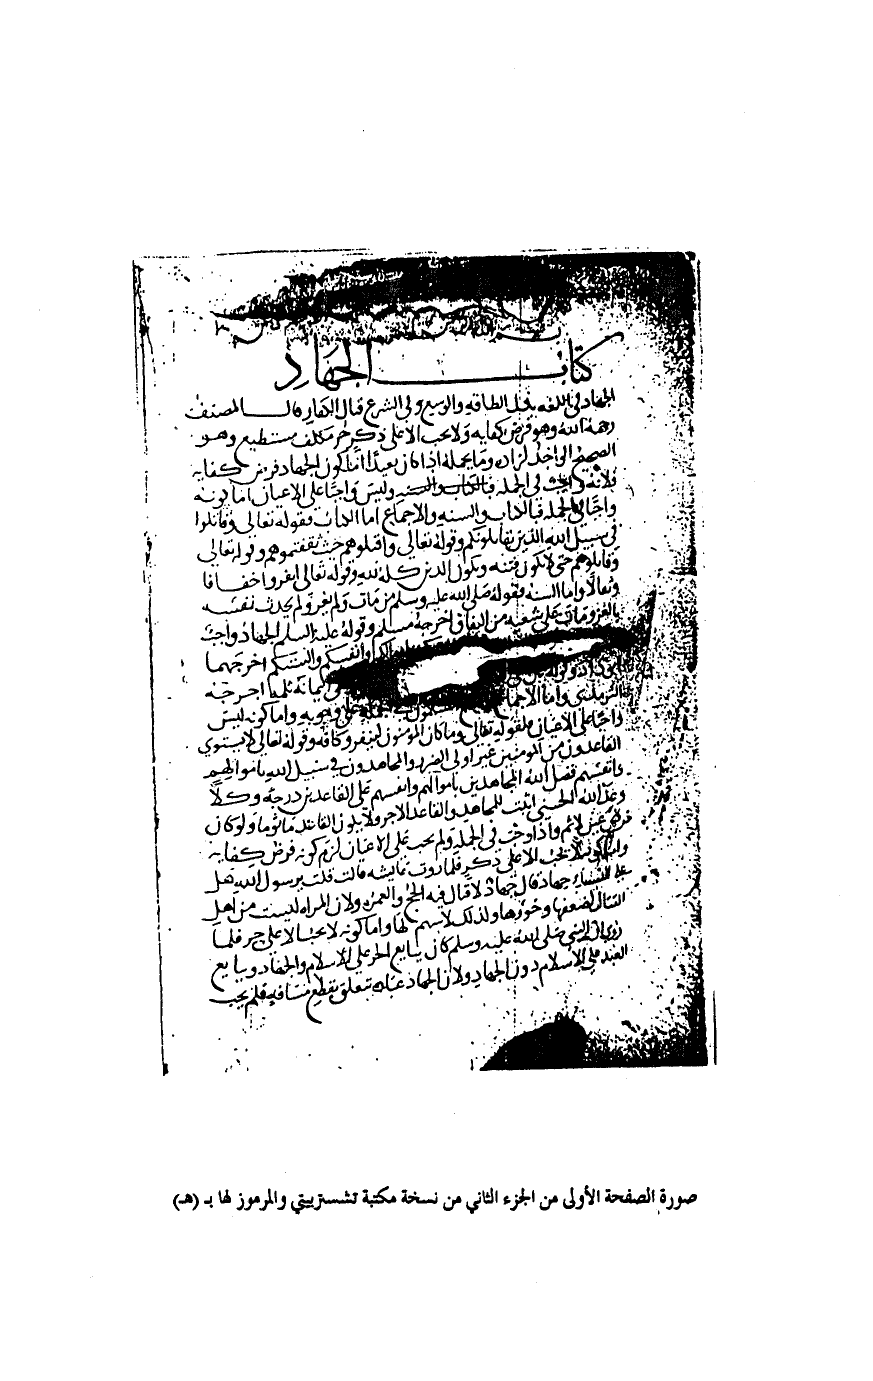 كتاب الجهاد
الجهاد في اللغه بذل الطاقه والوسع وفي الشرع قتال الكفار قال المصنف
رحمه الله وهو فرض كفايه ولا يجب الا على ذكر حر مكلف مستطيع وهو
الصحيح الواجد لزاد وما يحمله اذا كان بعيدا اما كون الجهاد فرض كفايه
فلانه واجب في الجمله وليس واجبا على الاعيان اما كونه
واجبا في الجمله فبالكتاب والسنه والاجماع اما الكتاب فقوله تعالى وقاتلوا
في سبيل الله الذين يقاتلونكم وقوله تعالى واقتلوهم حيث ثقفتموهم وقوله تعالى
وقاتلوهم حتى لا تكون فتنه ويكون الدين كله لله وقوله تعالى انفروا خفافا
وثقالا واما السنه فقوله صلى الله عليه وسلم من مات ولم يغز ولم يحدث نفسه
بالغزو مات على شعبه من النفاق اخرجه مسلم وقوله عليه السلم الجهاد واجب
وانفسكم والسنتكم اخرجهما
اخرجه
واما الاجماع وجوبه واما كونه ليس
واجبا على الاعيان فلقوله تعالى وما كان المومنون لينفروا كافه وقوله تعالى لا يستوي
القاعدون من المومنين غير اولي الضرر والمجاهدون في سبيل الله باموالهم
وانفسهم فضل الله المجاهدين باموالهم وانفسهم على القاعدين درجه وكلا
وعد الله الحسنى اثبت للمجاهد والقاعد الاجر ولا يكون القاعد ماثوما ولو كان
فرض عين لاثم واذا وجب في الجمله ولم يجب على الاعيان لزم كونه فرض كفايه
واما كونه لا يجب الا على ذكر فلما روت عايشه قالت قلت يرسول الله هل
على النساء جهاد قال جهاد لا قتال فيه الحج والعمره ولان المراه ليست من اهل
القتال لضعفها وخورها ولذلك لا يسهم لها واما كونه لا يجب الا على حر فلما
روي ان النبي صلى الله عليه وسلم كان يبايع الحر على الاسلام والجهاد ويبايع
العبد على الاسلام دون الجهاد ولان الجهاد عباده تتعلق بقطع مسافه فلم يجب
صورة الصفحة الأولى من الجزء الثاني من نسخة مكتبة تشستربيتي والمرموز لها بـ (هـ)